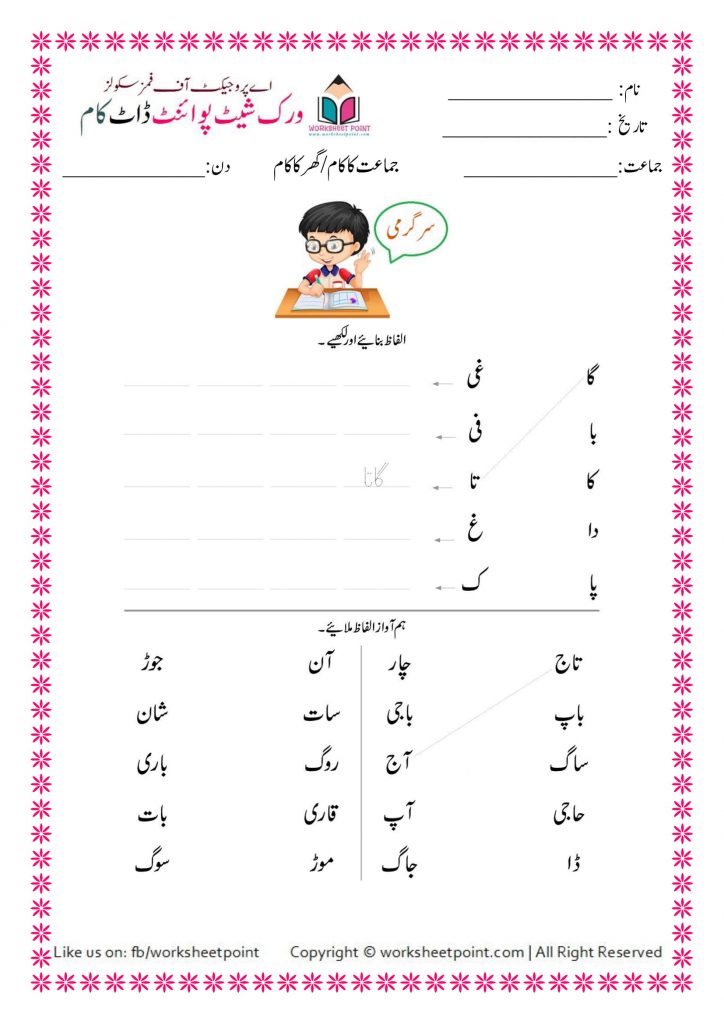 اے پروجیکٹ آف فمز سکولز
ورک شیٹ پوائنٹ ڈاٹ کام
WORKSHEET POINT
www.worksheetpoint.com
نام:
تاریخ:
جماعت: جماعت کا کام/گھر کا کام دن:
سرگرمی
الفاظ بنائیے اور لکھیے۔
گا غی
با فی
کا تا گاتا
دا غ
پا ک
ہم آواز الفاظ ملائیے۔
تاج چار آن جوڑ
باپ باجی سات شان
ساگ آج روگ باری
حاجی آپ قاری بات
ڈا جاگ موڑ سوگ
Like us on: fb/worksheetpoint Copyright © worksheetpoint.com | All Right Reserved